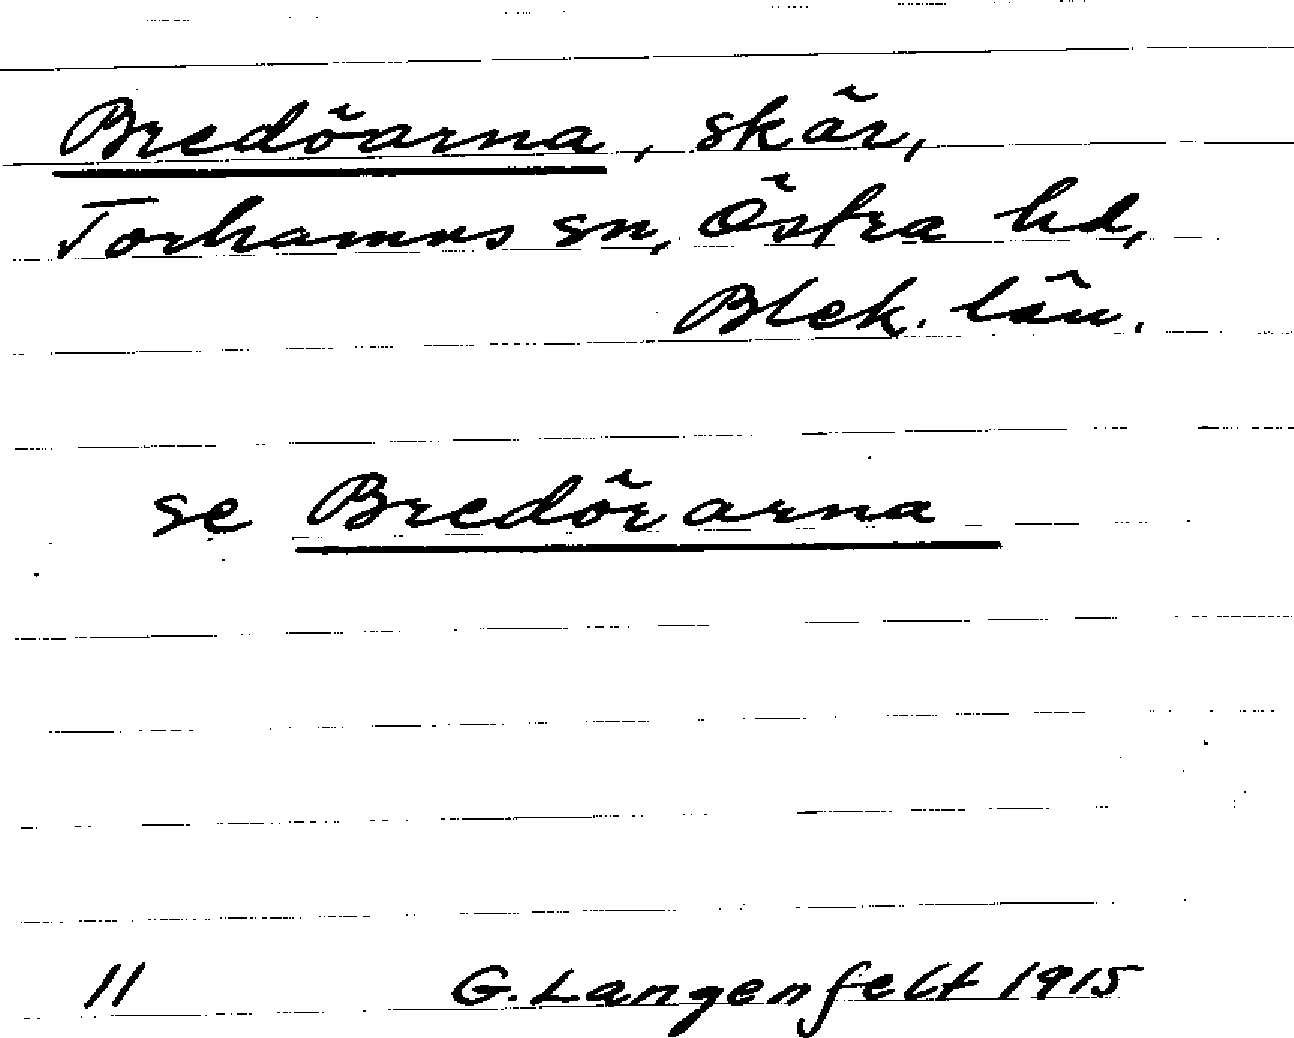 Bredöarna, skär,
Torhamns sn, Östra hd,
Blek. län.
se Bredörarna
11 G. Langenfelt 1915